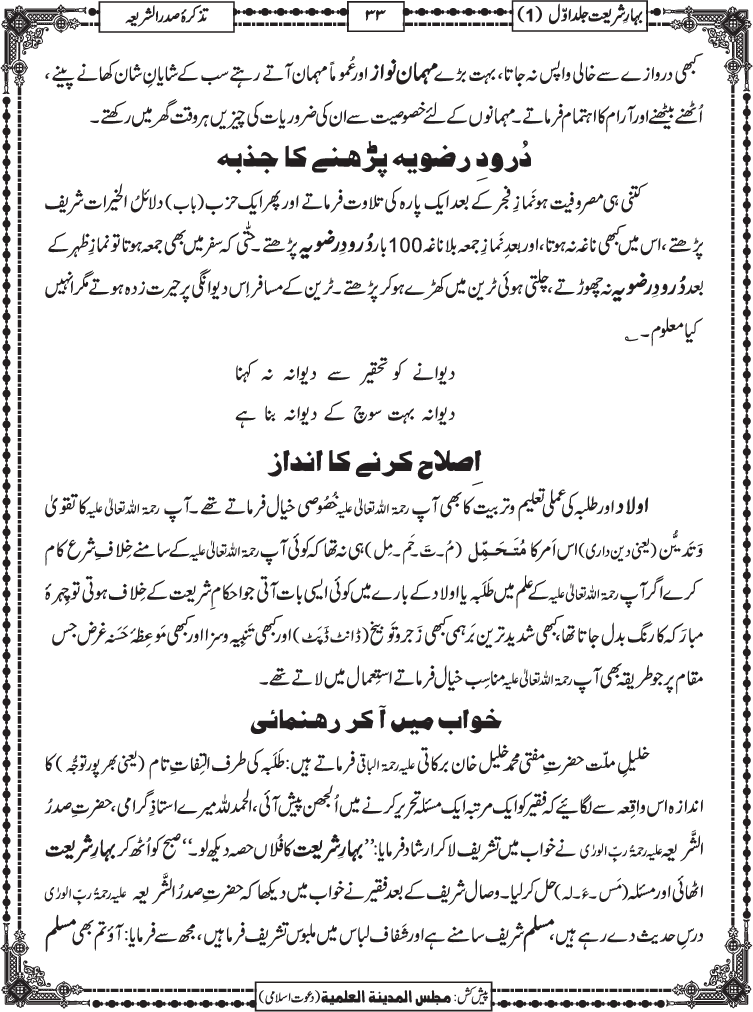 بہارِ شریعت جلد اوّل (1)
۳۳
تذکرۂ صدر الشریعہ
کبھی دروازے سے خالی واپس نہ جاتا، بہت بڑے مہمان نواز اور عُموماً مہمان آتے رہتے سب کے شایانِ شان کھانے پینے،
اُٹھنے بیٹھنے اور آرام کا اہتمام فرماتے۔ مہمانوں کے لئے خصوصیت سے ان کی ضروریات کی چیزیں ہر وقت گھر میں رکھتے۔
دُرودِ رضویہ پڑھنے کا جذبہ
کتنی ہی مصروفیت ہو نَمازِ فجر کے بعد ایک پارہ کی تلاوت فرماتے اور پھر ایک حزب (باب) دلائلُ الخیرات شریف
پڑھتے، اس میں کبھی ناغہ نہ ہوتا، اور بعدِ نَمازِ جمعہ بلا ناغہ 100 بار دُرُودِ رضویہ پڑھتے۔ حتّٰی کہ سفر میں بھی جمعہ ہوتا تو نمازِ ظہر کے
بعد دُرُودِ رضویہ نہ چھوڑتے، چلتی ہوئی ٹرین میں کھڑے ہو کر پڑھتے۔ ٹرین کے مسافر اِس دیوانگی پر حیرت زدہ ہوتے مگر انہیں
کیا معلوم۔ ؎
دیوانے کو تحقیر سے دیوانہ نہ کہنا
دیوانہ بہت سوچ کے دیوانہ بنا ہے
اِصلاح کرنے کا انداز
اولاد اور طلبہ کی عملی تعلیم و تربیت کا بھی آپ رحمۃ اللہ تعالٰی علیہ خُصُوصی خیال فرماتے تھے۔ آپ رحمۃ اللہ تعالٰی علیہ کا تقویٰ
وَ تَدَیُّن (یعنی دین داری) اس اَمر کا مُتَحَمِّل (مُ۔تَ۔حَم۔مِل) ہی نہ تھا کہ کوئی آپ رحمۃ اللہ تعالٰی علیہ کے سامنے خِلافِ شرع کام
کرے اگر آپ رحمۃ اللہ تعالٰی علیہ کے عِلم میں طلَبہ یا اولاد کے بارے میں کوئی ایسی بات آتی جو احکامِ شریعت کے خِلاف ہوتی تو چہرۂ
مبارَکہ کا رنگ بدل جاتا تھا، کبھی شدید ترین بَرہمی کبھی زَجر و تَوبیخ (ڈانٹ ڈَپَٹ) اور کبھی تَنبیہ و سزا اور کبھی مَوعِظۂ حَسَنہ غرض جس
مقام پر جو طریقہ بھی آپ رحمۃ اللہ تعالٰی علیہ مناسِب خیال فرماتے استِعمال میں لاتے تھے۔
خواب میں آ کر رھنمائی
خلیلِ ملّت حضرتِ مفتی محمد خلیل خان برکاتی علیہ رحمۃ الباقی فرماتے ہیں: طَلَبہ کی طرف التِفاتِ تام (یعنی بھر پور توجُّہ) کا
اندازہ اس واقِعہ سے لگائیے کہ فقیر کو ایک مرتبہ ایک مسئلہ تحریر کرنے میں اُلجھن پیش آئی، الحمدللہ میرے استاذِ گرامی، حضرتِ صدرُ
الشَّریعہ علیہ رحمۃُ ربِّ الورٰی نے خواب میں تشریف لا کر ارشاد فرمایا: ’’بہارِ شریعت کا فُلاں حصہ دیکھ لو۔‘‘ صبح کو اُٹھ کر بہارِ شریعت
اٹھائی اور مسئلہ (مَس۔ءَ۔لہ) حل کر لیا۔ وِصال شریف کے بعد فقیر نے خواب میں دیکھا کہ حضرتِ صدرُ الشَّریعہ علیہ رحمۃُ ربِّ الورٰی
درسِ حدیث دے رہے ہیں، مسلم شریف سامنے ہے اور شَفاف لباس میں ملبوس تشریف فرما ہیں، مجھ سے فرمایا: آؤ تم بھی مسلم
پیش کش: مجلس المدینۃ العلمیۃ (دعوتِ اسلامی)